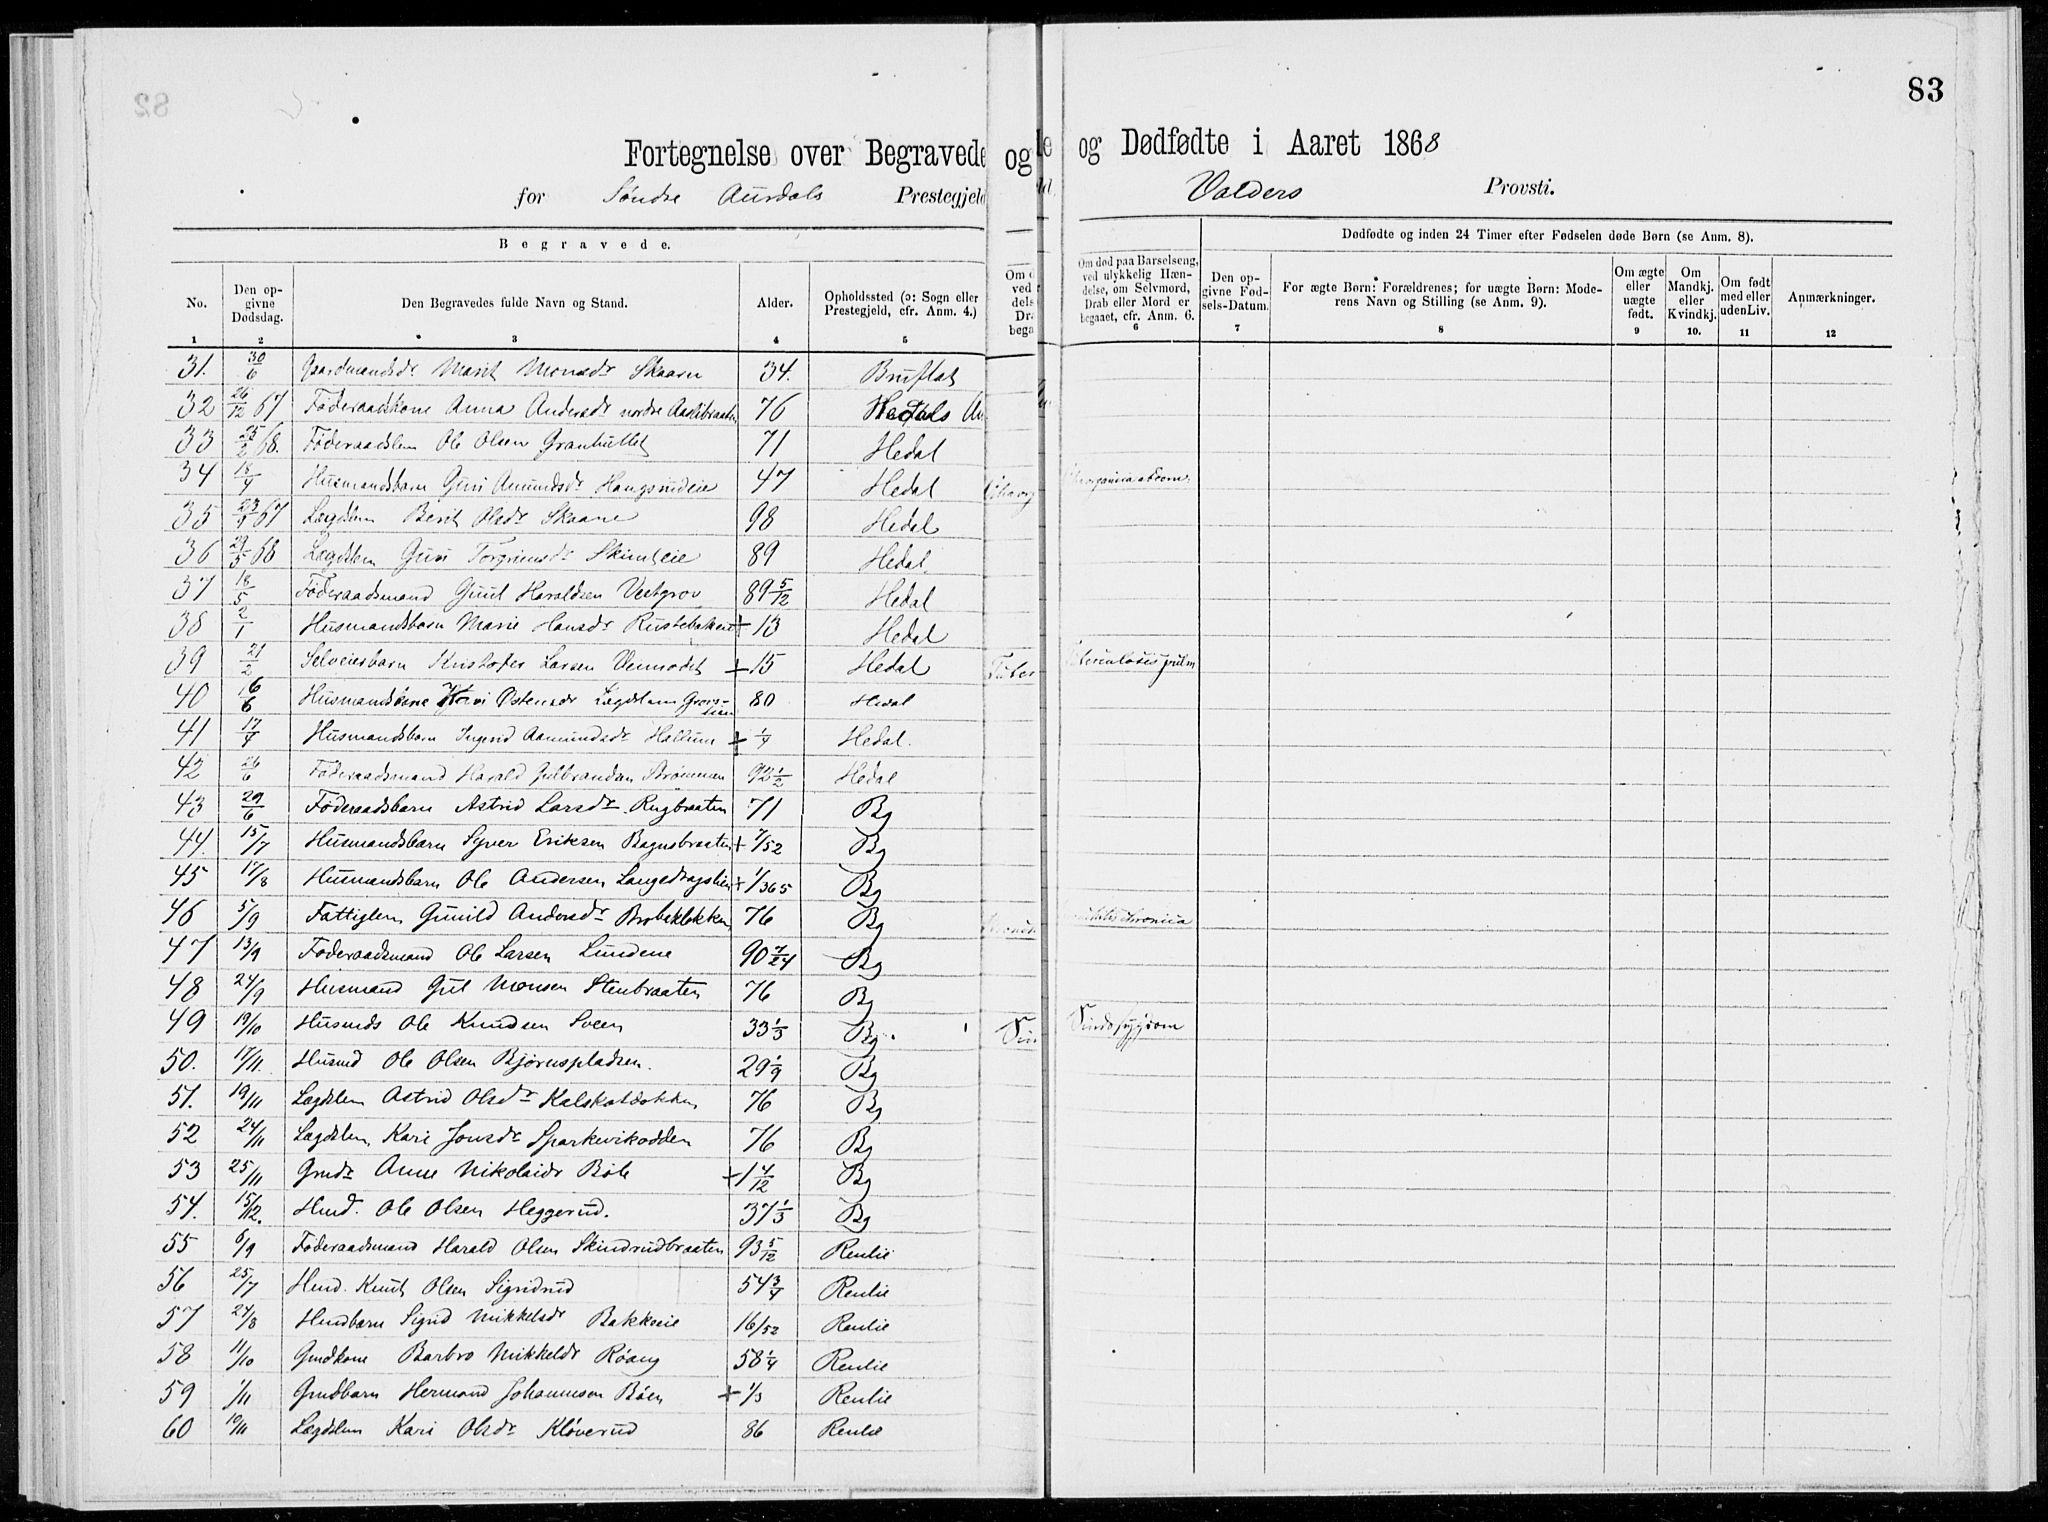 82
83
Fortegnelse over Begravede og Dødfødte i Aaret 1868
for Søndre Aurdals Prestegjeld Valders Provsti.
Begravede.
Dødfødte og inden 24 Timer efter Fødselen døde Børn (se Anm. 8).
No.
Den opgivne Dødsdag.
Den Begravedes fulde Navn og Stand.
Alder.
Opholdssted (ɔ: Sogn eller Prestegjeld, cfr. Anm. 4.)
Om død paa Barselseng, ved ulykkelig Hændelse, om Selvmord, Drab eller Mord er begaaet, cfr. Anm. 6.
Den opgivne Fødsels-Datum.
For ægte Børn: Forældrenes; for uægte Børn: Moderens Navn og Stilling (se Anm. 9).
Om ægte eller uægte født.
Om Mandkj. eller Kvindkj.
Om født med eller uden Liv.
Anmærkninger.
1 2 3 4 5 6 7 8 9 10. 11 12
31. 30/6 Gaardmandsdr Marit Monsdr Skaarn 34. Bruflat
32 26/12 67 Føderaadskone Anna Andersdr nordre 76 Hedals
33 25/2 68. Føderaadslem Ole Olsen Granhullet 71 Hedal
34 18/4 Husmandsbarn Guri Amundsdr Haugsrudeie 47 Hedal
35 67 Lægdslem Berit Olsdr Skaane 98 Hedal
36 29/5 68 Lægdslem Guri Torgrimsdr 89 Hedal
37 18/5 Føderaadsmand Guul Haraldsen 89 5/12 Hedal
38 2/1 Husmandsbarn Marie Hansdr + 13 Hedal
39 21/2 Selveiersbarn Kristofer Larsen + 15 Hedal Tuberculosis pulm
40 16/6 Husmandskone Østensdr Lægdslem 80 Hedal
41 17/4 Husmandsbarn Ingerid Aamundsdr Hallum + 1/4 Hedal.
42 26/6 Føderaadsmand Harald Gulbrandsen Strømmen 92 1/2 Hedal
43 29/6 Føderaadsbarn Astrid Larsdr Rugbraaten 71 Bg
44. 15/7 Husmandsbarn Syver Eriksen Bagnsbraaten + 7/52 Bg
45 17/8 Husmandsbarn Ole Andersen Langedragslien + 1/365 Bg
46 5/9 Fattiglem Gunild Andersdr Brobekløkken 76 Bg chronica
47 13/9 Føderaadsmand Ole Larsen Lundene 90 7/24 Bg
48 24/9 Husmand Gul Monsen Stenbraaten 76 Bg
49 19/10 Husmds Ole Knudsen Sveen 33 1/3 Bg. Sindssygdom
50. 17/11. Husmd Ole Olsen Bjørnspladsen. 29 1/9 Bg
51. 19/11 Lægdslem Astrid Olsdr 76 Bg
52 24/11 Lægdslem Kari Jonsdr Sparkevikodden 76 Bg
53 25/11 Grmdr Anne Nikolaidr Bøle + 1 4/12 Bg
54. 15/12. Hmd. Ole Olsen Heggerud. 37 1/3 Bg
55 6/9 Føderaadsmand Harald Olsen Skindrudbraaten 93 5/12 Renlie
56 25/7 Hmd. Knut Olsen Sigridrud 54 3/4 Renlie
57 24/8 Hmdbarn Sigrid Mikkelsdr Bakkeeie 16/52 Renlie
58 11/10 Gmdkone Barbro Mikkelsdr Røang 58 1/4 Renlie
59 1/11 Gmdbarn Hermand Johannesen Bøen + 1/3 Renlie
60 10/11 Lægdslem Kari Olsdr Kløverud 86 Renlie